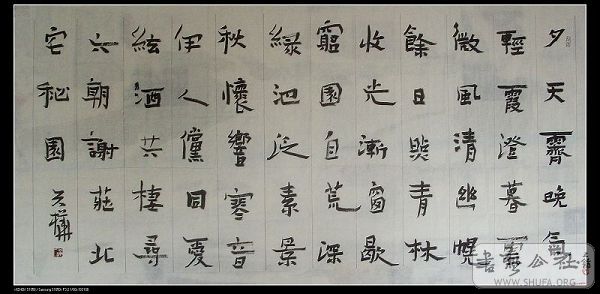 夕天霽晚氣
輕霞澄暮
微風清幽幌
餘日照青林
收光漸窗歇
窮園自荒深
緑池泛素景
秋懷響寒音
伊人儻同愛
絃酒共棲尋
六朝謝莊北
宅秘園
书法公社
WWW.SHUFA.ORG